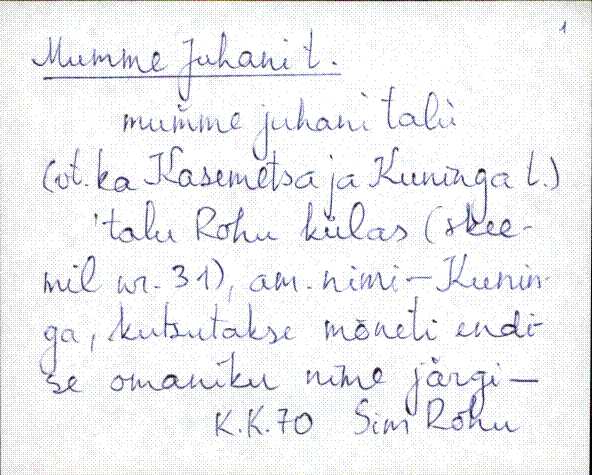 1
Mumme Juhani t.
mum̆me juhani talù
(vt. ka Kasemetsa ja Kuninga t.)
'talu Rohu külas (skee-
mil nr. 31), am. nimi – Kunin-
ga, kutsutakse mõneti endi-
se omaniku nime järgi –
K.K. 70 Sim Rohu